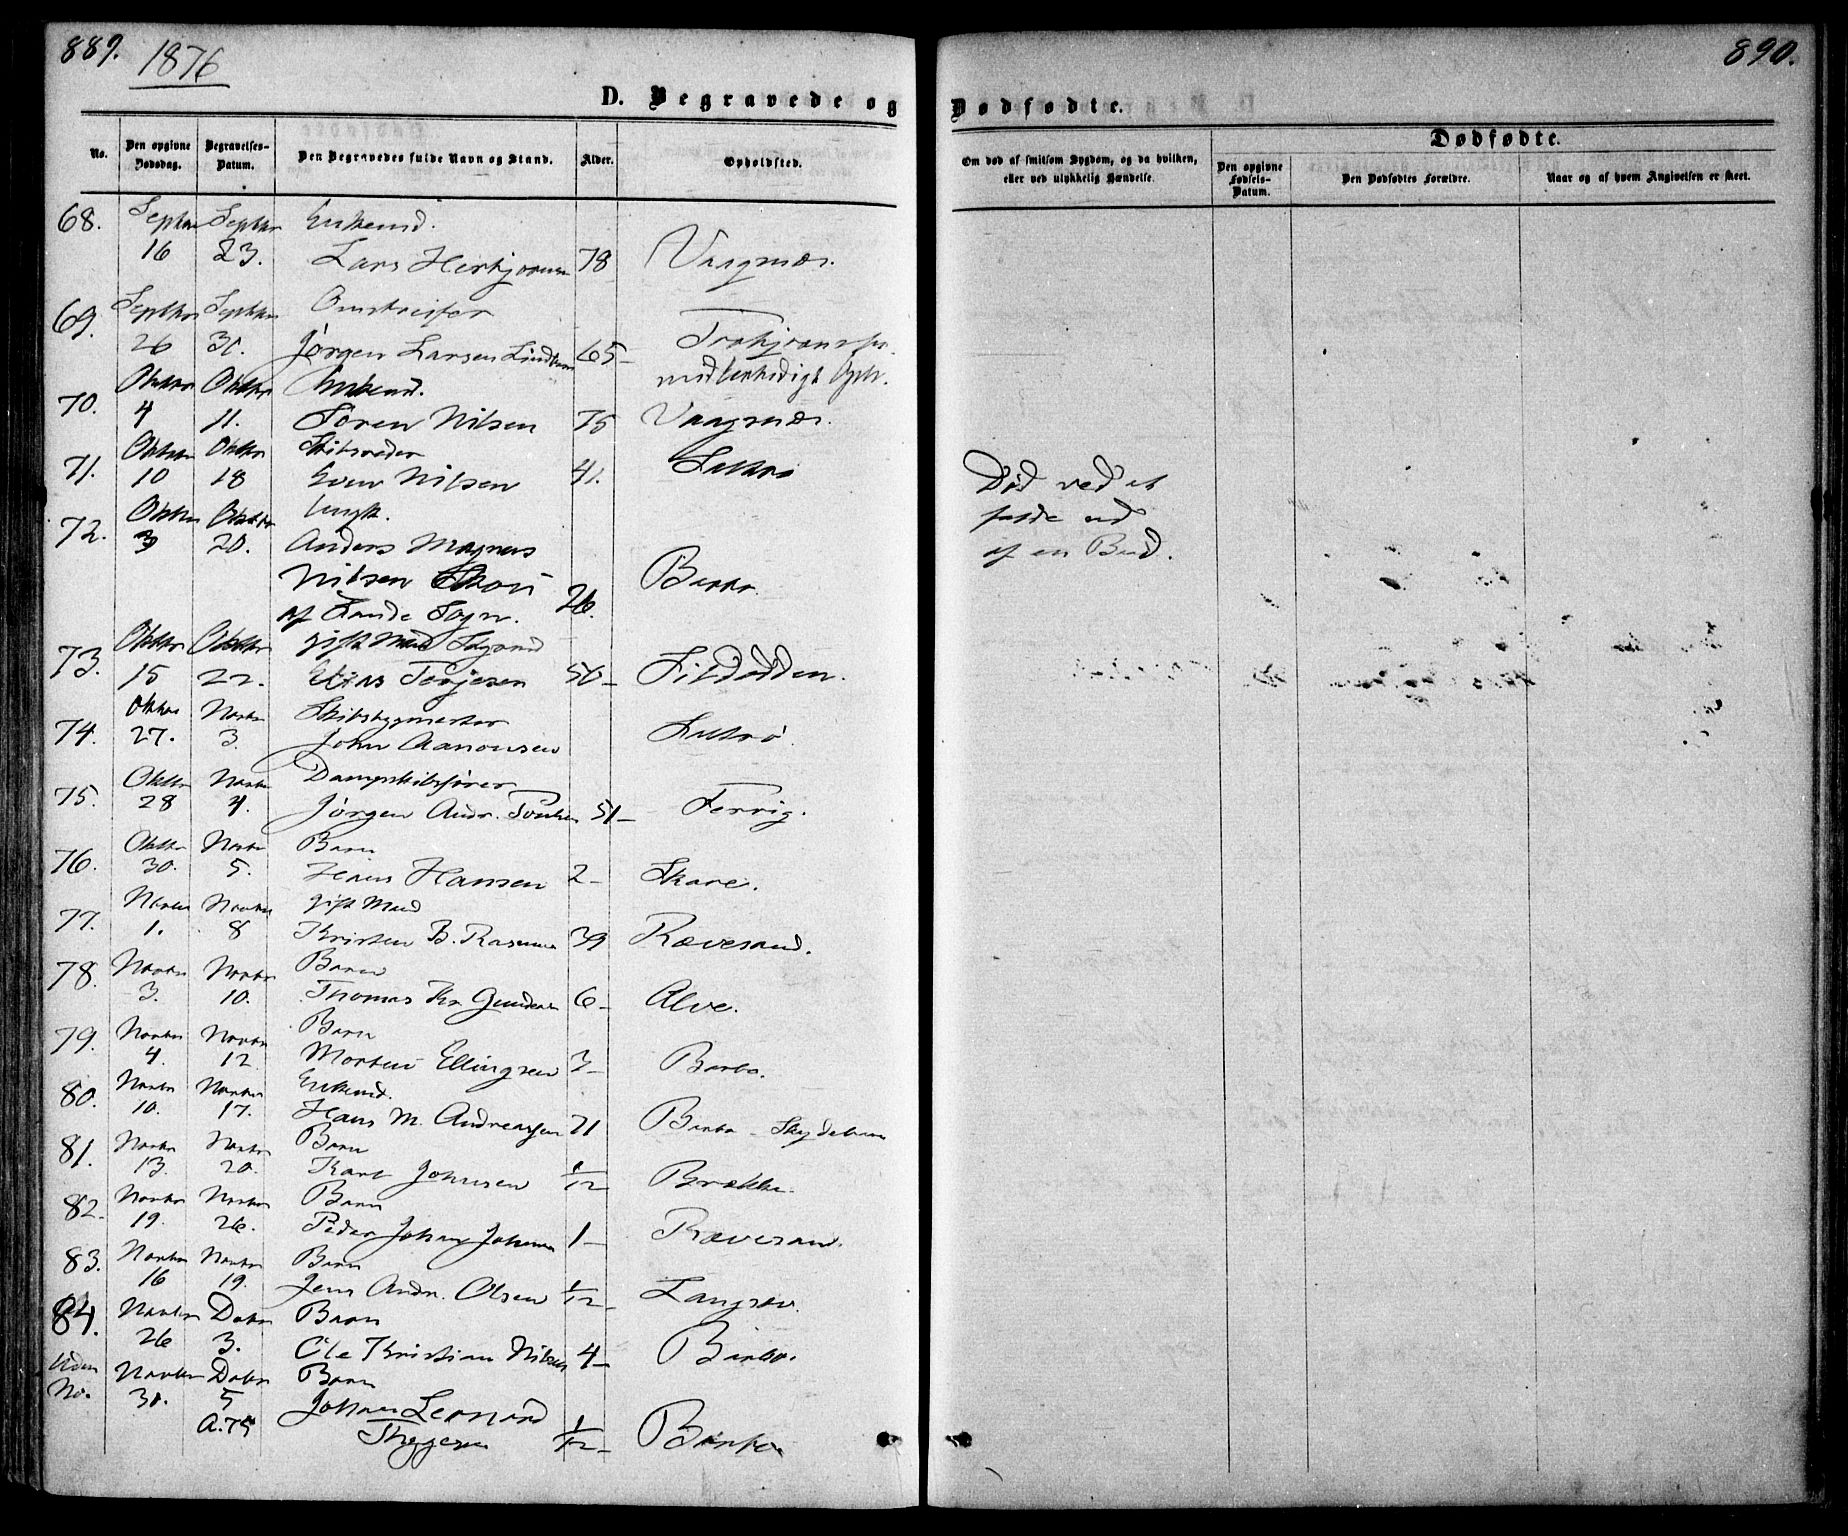 889.
1876
890.
D. Begravede og Dødfødte.
No.
Den opgivne Dødsdag.
Begravelses-Datum.
Den Begravedes fulde Navn og Stand.
Alder.
Opholdsted.
Om død af smitsom Sygdom, og da hvilken,
eller ved ulykkelig Hændelse.
Dødfødte.
Den opgivne Fødsels-Datum.
Den Dødfødtes Forældre.
Naar og af hvem Angivelsen er skeet.
68. Septbr Septbr Enkemd.
16 23. Lars 78 Vaagsnæs.
69. Septbr Septbr Omstreifer
26 31. Jørgen Larsen 65
70. Oktbr Oktbr Enkemd.
4 11. Søren Nilsen 75 Vaagsnæs.
71. Oktbr Oktbr Skibsreder
10 18 Even Nilsen 41.
Død ved at
falde ud
af en Baad.
72. Oktbr Oktbr Ungk.
3 20. Anders Magnus
Nilsen
af Lande Sogn. 26. Barbo.
73. Oktbr Oktbr gift Mand
15 22. Elias Terjesen 50 Sildodden.
74. Oktbr Novbr Skibsbygmester
27. 3. John Aanonsen
75. Oktbr Novbr Dampskibsfører
28 4. Jørgen Andr. 51
76. Oktbr Novbr Barn
30. 5. Hans Hansen 2 Skare.
77. Novbr Novbr gift Mand
1. 8 Kristen B. 39 Rævesand.
78. Novbr Novbr Barn
3. 10. Thomas Kr. 6 Alve.
79. Novbr Novbr Barn
4. 12. Morten Ellingsen 3 Barbo.
80. Novbr Novbr Enkemd.
10. 17. Hans M. Andreassen 71 Barbo
81. Novbr Novbr Barn
13. 20. Karl Johnsen 1/12 Brække.
82. Novbr Novbr Barn
19. 26. Peder Johan 1 Rævesand.
83. Novbr Novbr Barn
16 19. Jens Andr. Olsen 1/12
84. Novbr Debr Barn
26 3. Ole Kristian Nilsen 4 Barbo.
Uden Novbr Debr Barn
No. 30. 5 Johan Leonard
A.75 1/12 Barbo